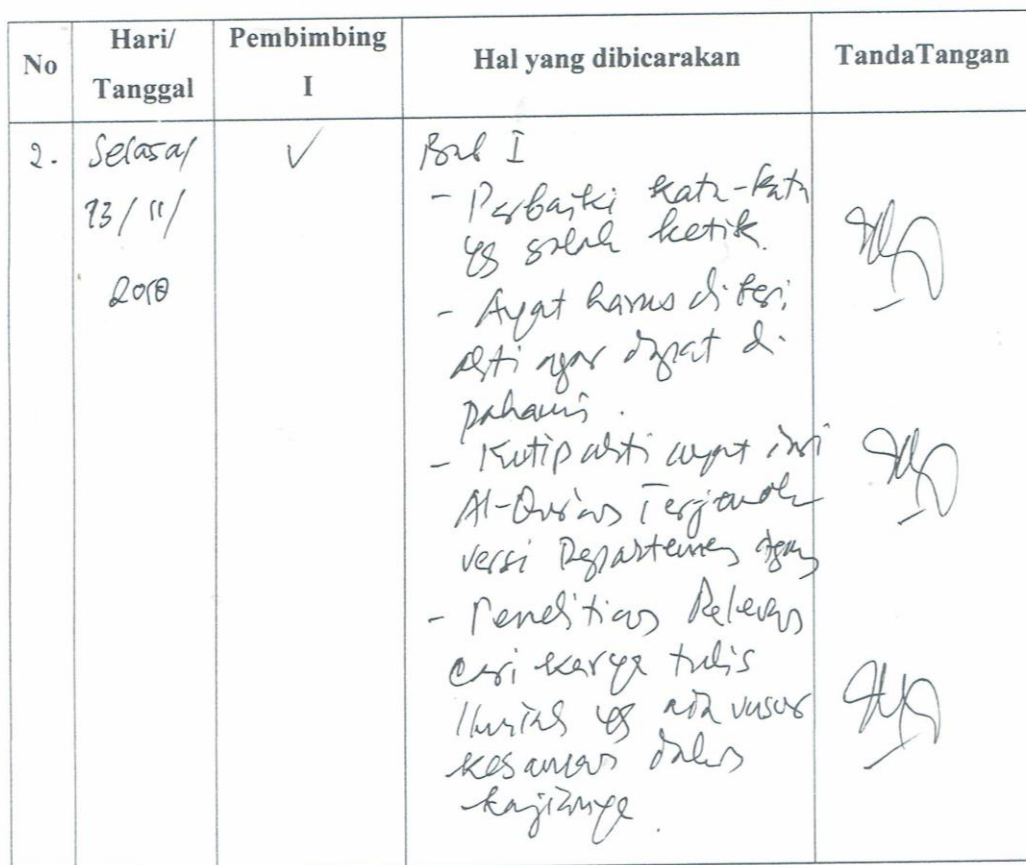 No Hari/ Tanggal Pembimbing I Hal yang dibicarakan TandaTangan
2. Selasa/ ✓ Bab I
13/11/
2018
- Perbaiki kata-kata
yg salah ketik.
- Ayat harus diberi
arti agar dapat di
pahami.
- Kutip arti ayat dari
Al-Qur'an Terjemah
versi Departemen Agama
- Penelitian Relevan
cari karya tulis
Ilmiah yg ada unsur
kesamaan dalam
kajiannya.